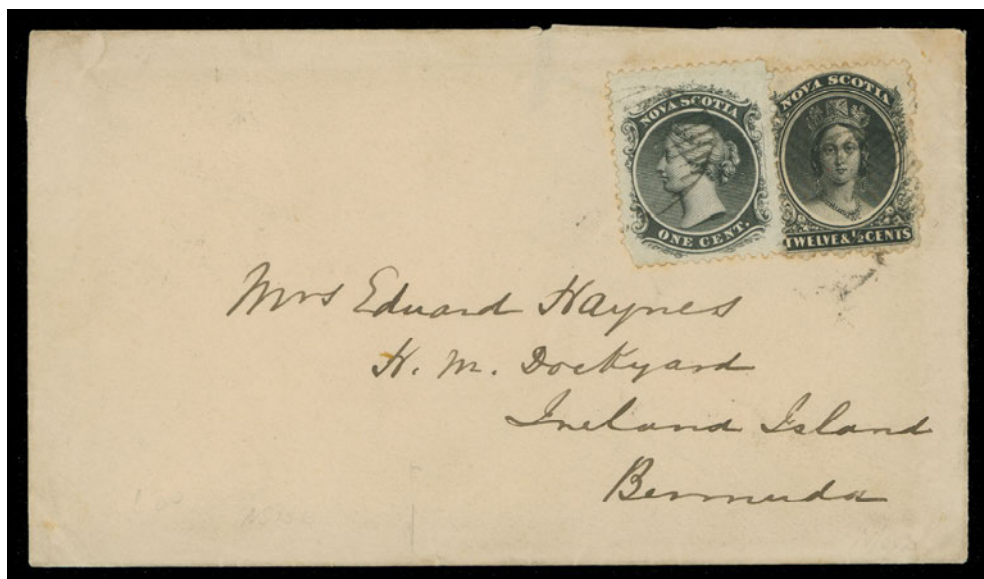 NOVA SCOTIA
ONE CENT.
NOVA SCOTIA
TWELVE & ½ CENTS
Mrs Edward Haynes
H. M. Dockyard
Ireland Island
Bermuda